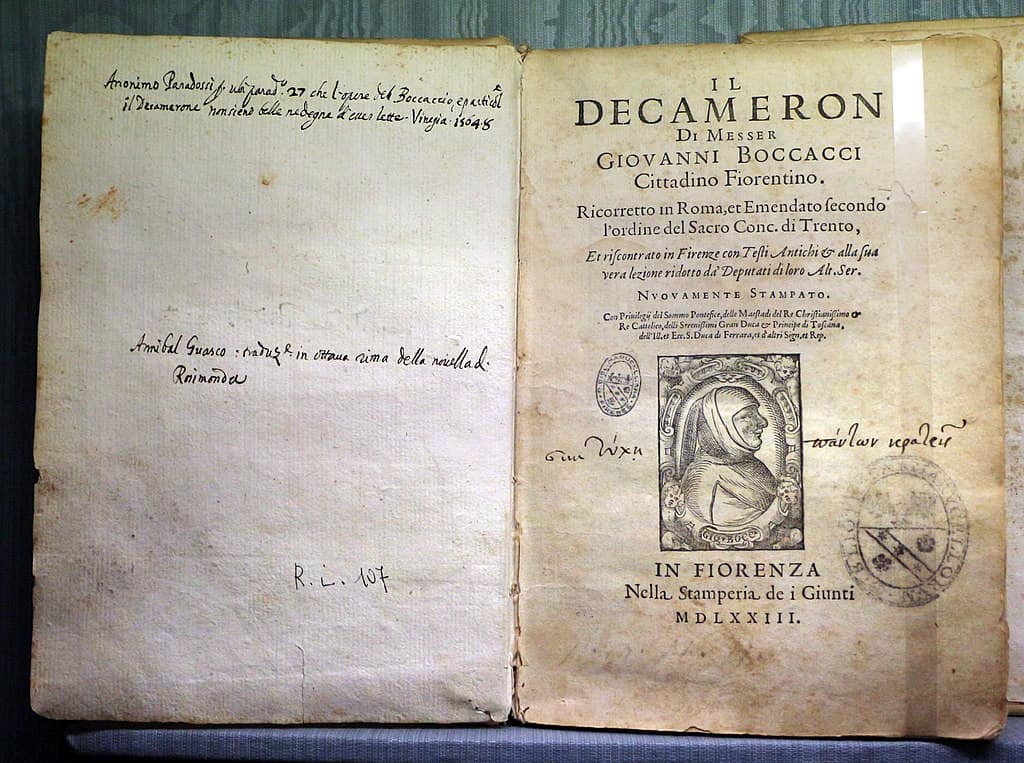 Anonimo Paradossi
27 che l'opere del Boccaccio,
il Decamerone non sieno lette. Vinegia. 1564. 8
Annibal Guasco: in ottava rima della novella d.
Rosimonda
R. i. 107
IL
DECAMERON
DI MESSER
GIOVANNI BOCCACCI
Cittadino Fiorentino.
Ricorretto in Roma, et Emendato ſecondo
l'ordine del Sacro Conc. di Trento,
Et riſcontrato in Firenze con Teſti Antichi & alla ſua
vera lezione ridotto da' Deputati di loro Alt. Ser.
NVOVAMENTE STAMPATO.
Con Priuilegij del Sommo Pontefice, delle Maeſtadi del Re Chriſtianiſſimo &
Re Cattolico, delli Sereniſſimi Gran Duca & Principe di Toſcana,
dell'Ill. et Ecc. S. Duca di Ferrara, et d'altri Sign. et Rep.
τύχη πάντων κρατεῖ
GIO • BOCC
IN FIORENZA
Nella Stamperia de i Giunti
MDLXXIII.